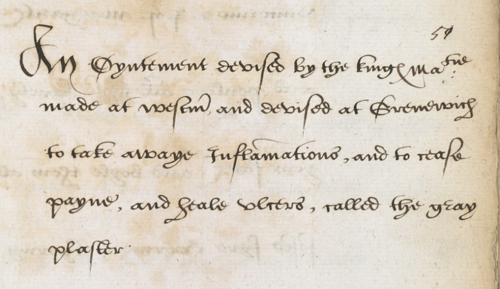 51
An Oyntement devised by the kinges Ma:tie
made at westm, and devised at Grenewich
to take awaye Inflamations, and to cease
payne, and heale ulcers, called the gray
plaster